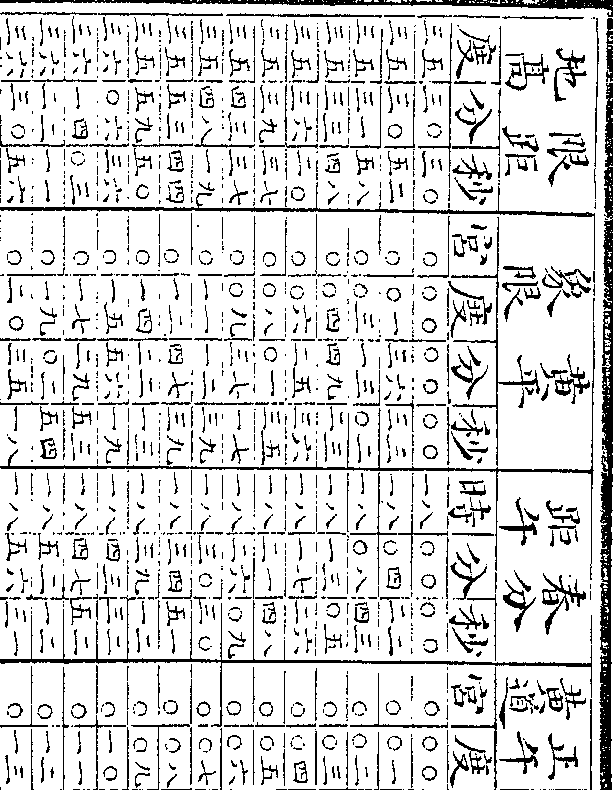 限距地高 黄平象限 春分距午 正午黄道
度 分 秒 宮 度 分 秒 時 分 秒 宮 度
三五 三〇 三〇 〇 〇〇 〇〇 〇〇 一八 〇〇 〇〇 〇 〇〇
三五 三〇 五二 〇 〇一 三六 三二 一八 〇四 二二 〇 〇一
三五 三一 五八 〇 〇三 一三 〇二 一八 〇八 四三 〇 〇二
三五 三三 四八 〇 〇四 四九 二三 一八 一三 〇五 〇 〇三
三五 三六 二〇 〇 〇六 二五 三六 一八 一七 二六 〇 〇四
三五 三九 三七 〇 〇八 〇一 三五 一八 二一 四八 〇 〇五
三五 四三 三七 〇 〇九 三七 一七 一八 二六 〇九 〇 〇六
三五 四八 一九 〇 一一 一二 三九 一八 三〇 三〇 〇 〇七
三五 五三 四四 〇 一二 四七 三九 一八 三四 五一 〇 〇八
三五 五九 五〇 〇 一四 二二 一三 一八 三九 一二 〇 〇九
三六 〇六 三六 〇 一五 五六 一九 一八 四三 三二 〇 一〇
三六 一四 〇三 〇 一七 二九 五三 一八 四七 五二 〇 一一
三六 二二 一一 〇 一九 〇二 五四 一八 五二 一二 〇 一二
三六 三〇 五六 〇 二〇 三五 一八 一八 五六 三一 〇 一三